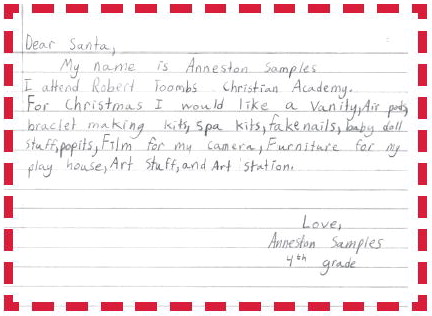 Dear Santa,
My name is Anneston Samples
I attend Robert Toombs Christian Academy.
For Christmas I would like a Vanity, Air pods,
braclet making kits, spa kits, fake nails, baby doll
stuff, popits, Film for my camera, Furniture for my
play house, Art stuff, and Art station.
Love,
Anneston Samples
4th grade